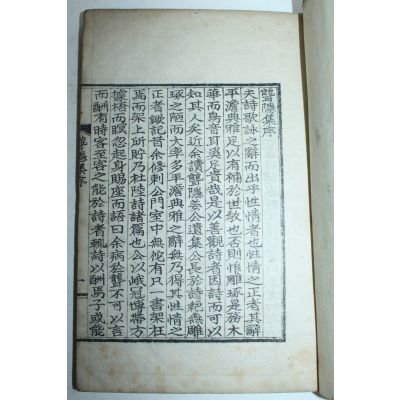 聾隱集序
夫詩歌詠之辭而出乎性情者也性情之正者其辭
平澹典雅足以有補於世敎也否則惟雕琢是務木
華而鳥音耳奚足貴哉是以善觀詩者因詩而可以
知其人矣近余讀聾隱姜公遺集公長於詩絶無雕
琢之陋而大率多平澹典雅之辭無乃得其性情之
正者歟記昔余修刺公門室中無佗有只一書架在
焉而架上所貯乃杜陸詩諸篇也公以峨冠博帶方
據梧而瞑忽起身賜座而語曰余病於聾不可以言
而酬有時客至客之能於詩者輒詩以酬焉子或能
聾隱集序 一